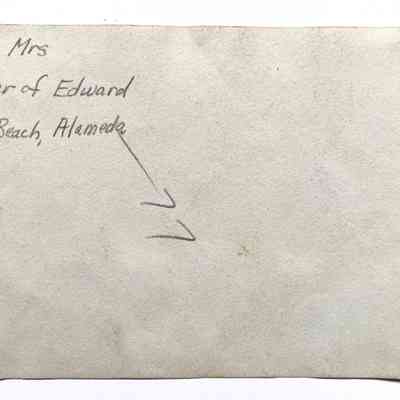 Mrs
er of Edward
Beach, Alameda